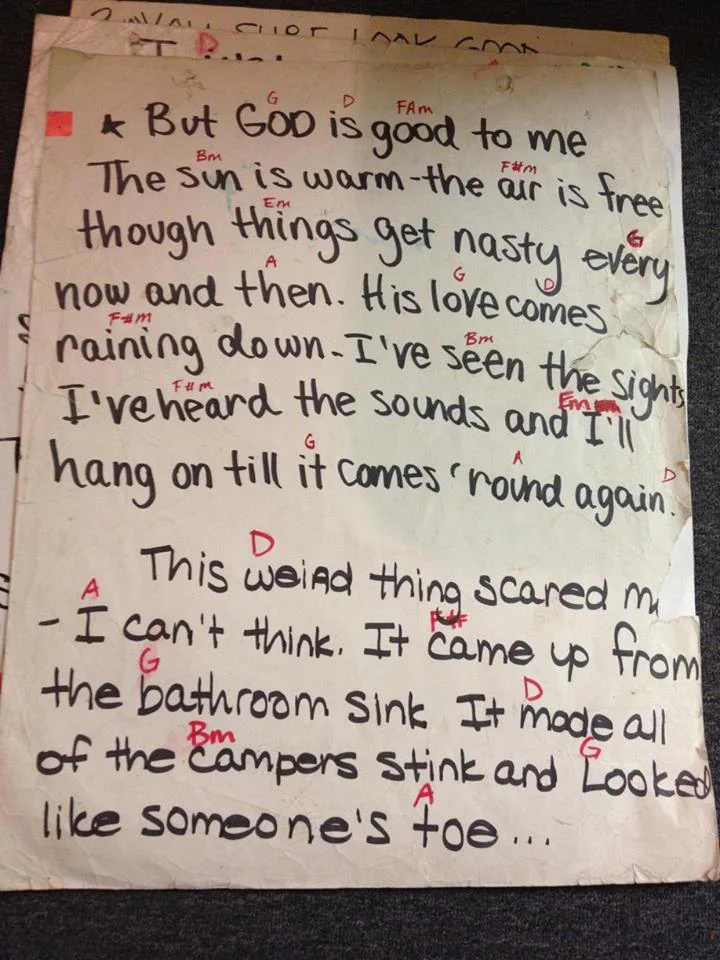 D
I
G D F#m
★ But GOD is good to me
Bm F#m
The sun is warm-the air is free
Em G
though things get nasty every
A G D
now and then. His love comes
F#m Bm
raining down-I've seen the sights
F#m Em
I've heard the sounds and I'll
G A D
hang on till it comes 'round again.
D
This weird thing scared m
A F#
- I can't think. It came up from
G D
the bathroom sink It made all
Bm G
of the campers stink and Looked
A
like someone's toe...